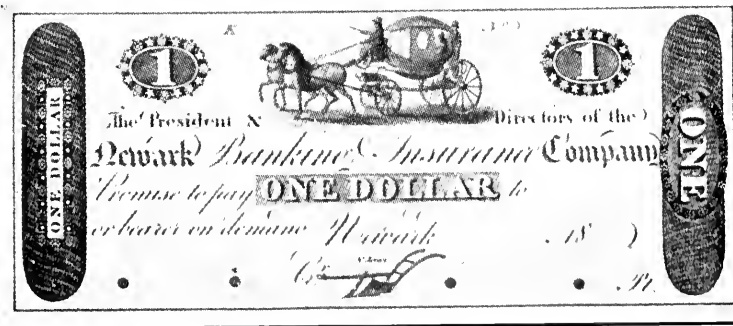 ONE DOLLAR
1
1
The President &
Directors of the
Newark Banking & Insurance Company
Promise to pay ONE DOLLAR to
or bearer on demand Newark 18
ONE